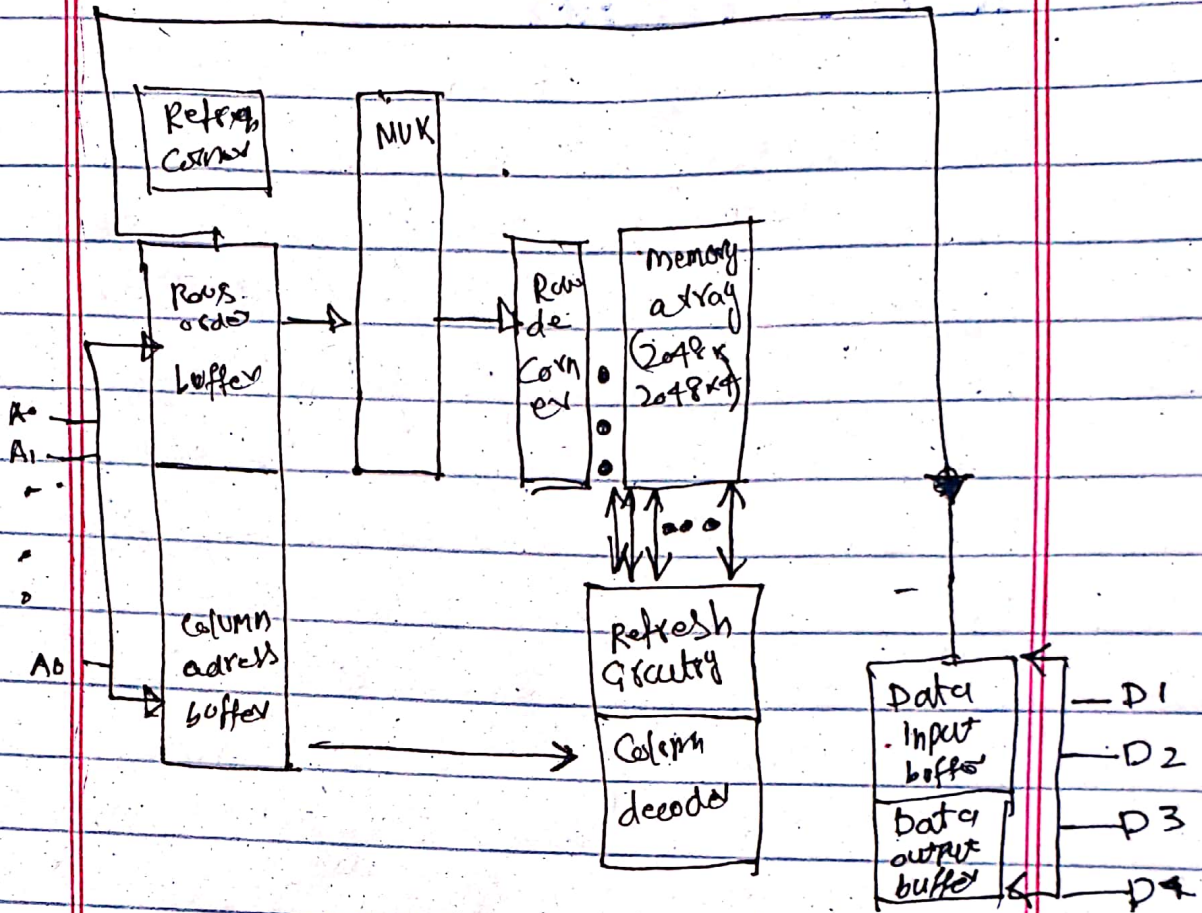 Refresh
Corner
MUX
Rows
order
buffer
Row
de
Corn
er
memory
array
(2048x
2048x4)
A0
A1
A0
Column
adress
buffer
Refresh
Circutry
Column
decoder
Data
input
buffer
Data
output
buffer
D1
D2
D3
D4